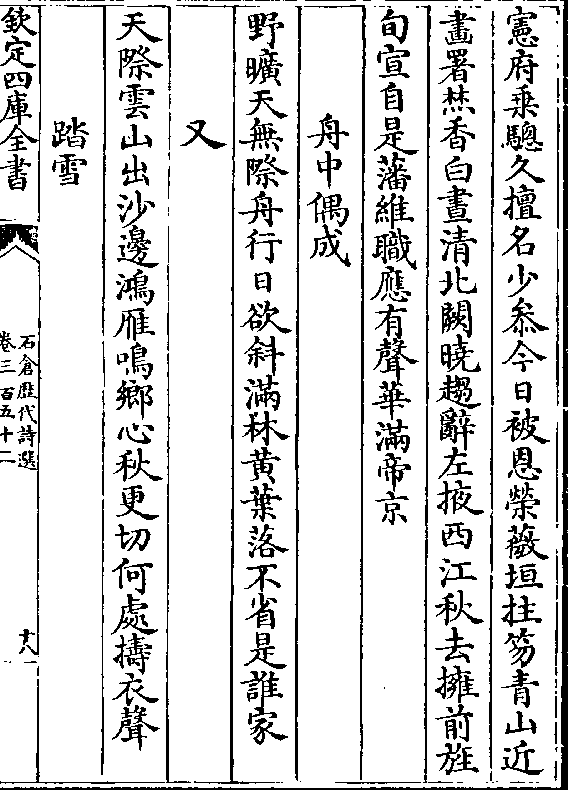 憲府乗驄久擅名少叅今日被恩榮薇垣拄笏青山近
畫署焚香白晝清北闕曉趨辭左掖西江秋去擁前旌
旬宣自是藩維職應有聲華滿帝京
舟中偶成
野曠天無際舟行日欲斜滿林黄葉落不省是誰家
又
天際雲山出沙邊鴻雁鳴鄉心秋更切何處擣衣聲
踏雪
欽定四庫全書
石倉歴代詩選
卷三百五十二
十八